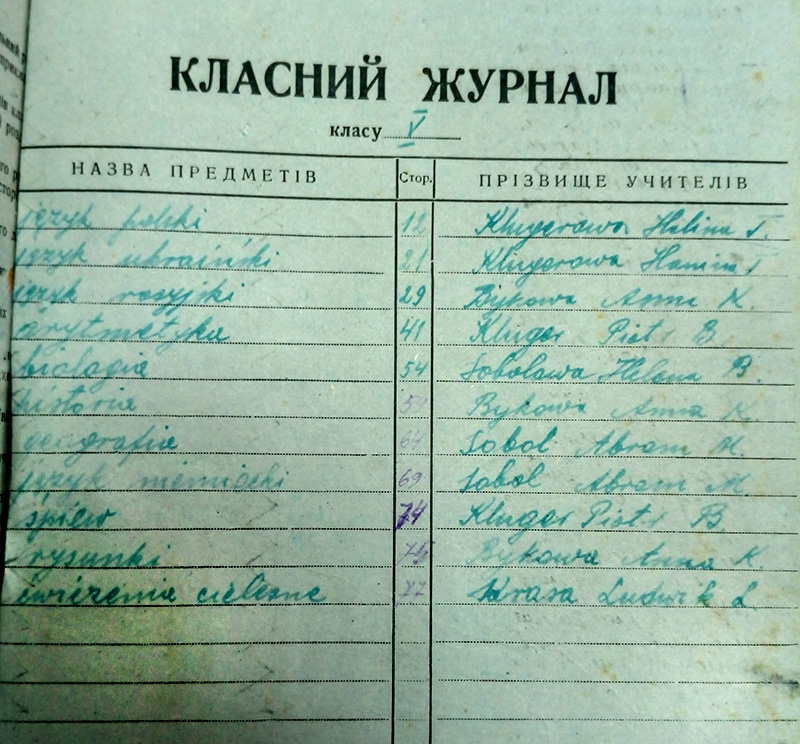 КЛАСНИЙ ЖУРНАЛ
класу V
НАЗВА ПРЕДМЕТІВ Стор. ПРІЗВИЩЕ УЧИТЕЛІВ
język polski 12 Klugerowa Halina T.
język ukraiński 21 Klugerowa T
język rosyjski 29 Bykowa Anna K.
arytmetyka 41 Kluger Piotr B.
biologia 54 Sobolowa Helena B.
historia Bykowa Anna K.
geografia Sobol Abram M.
język niemiecki 69 Sobol Abram M.
śpiew 74 Kluger Piotr B.
rysunki Bykowa Anna K.
ćwiczenia cielesne 77 Ludwik L